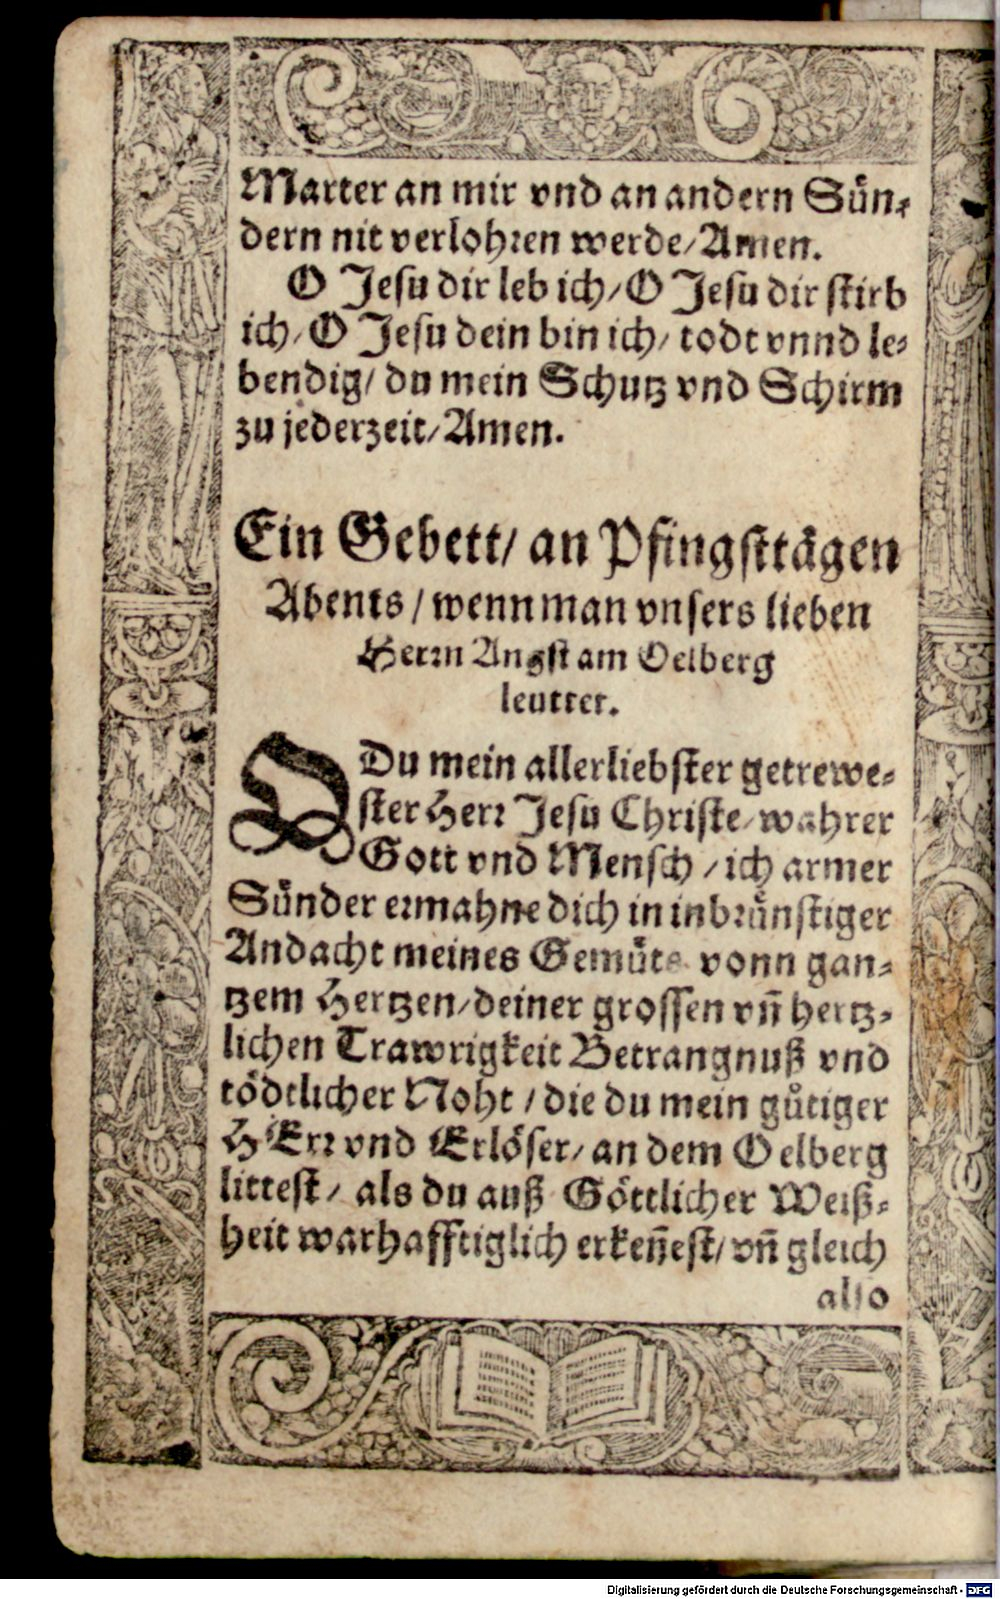 Marter an mir vnd an andern Sün⸗
dern nit verlohren werde/ Amen.
O Jesu dir leb ich/ O Jesu dir stirb
ich/ O Jesu dein bin ich/ todt vnnd le⸗
bendig/ du mein Schutz vnd Schirm
zu jederzeit/ Amen.
Ein Gebett/ an Pfingsttägen
Abents / wenn man vnsers lieben
Herrn Angst am Oelberg
leuttet.
O Du mein allerliebster getrewe⸗
ster Herr Jesu Christe/ wahrer
Gott vnd Mensch / ich armer
Sünder ermahne dich in inbrünstiger
Andacht meines Gemüts vonn gan⸗
tzem Hertzen/ deiner grossen vn̄ hertz⸗
lichen Trawrigkeit Betrangnuß vnd
tödtlicher Noht / die du mein gůtiger
HErr vnd Erlöser/ an dem Oelberg
littest/ als du auß Göttlicher Weiß⸗
heit warhafftiglich erken̄est/ vn̄ gleich
also
Digitalisierung gefördert durch die Deutsche Forschungsgemeinschaft - DFG